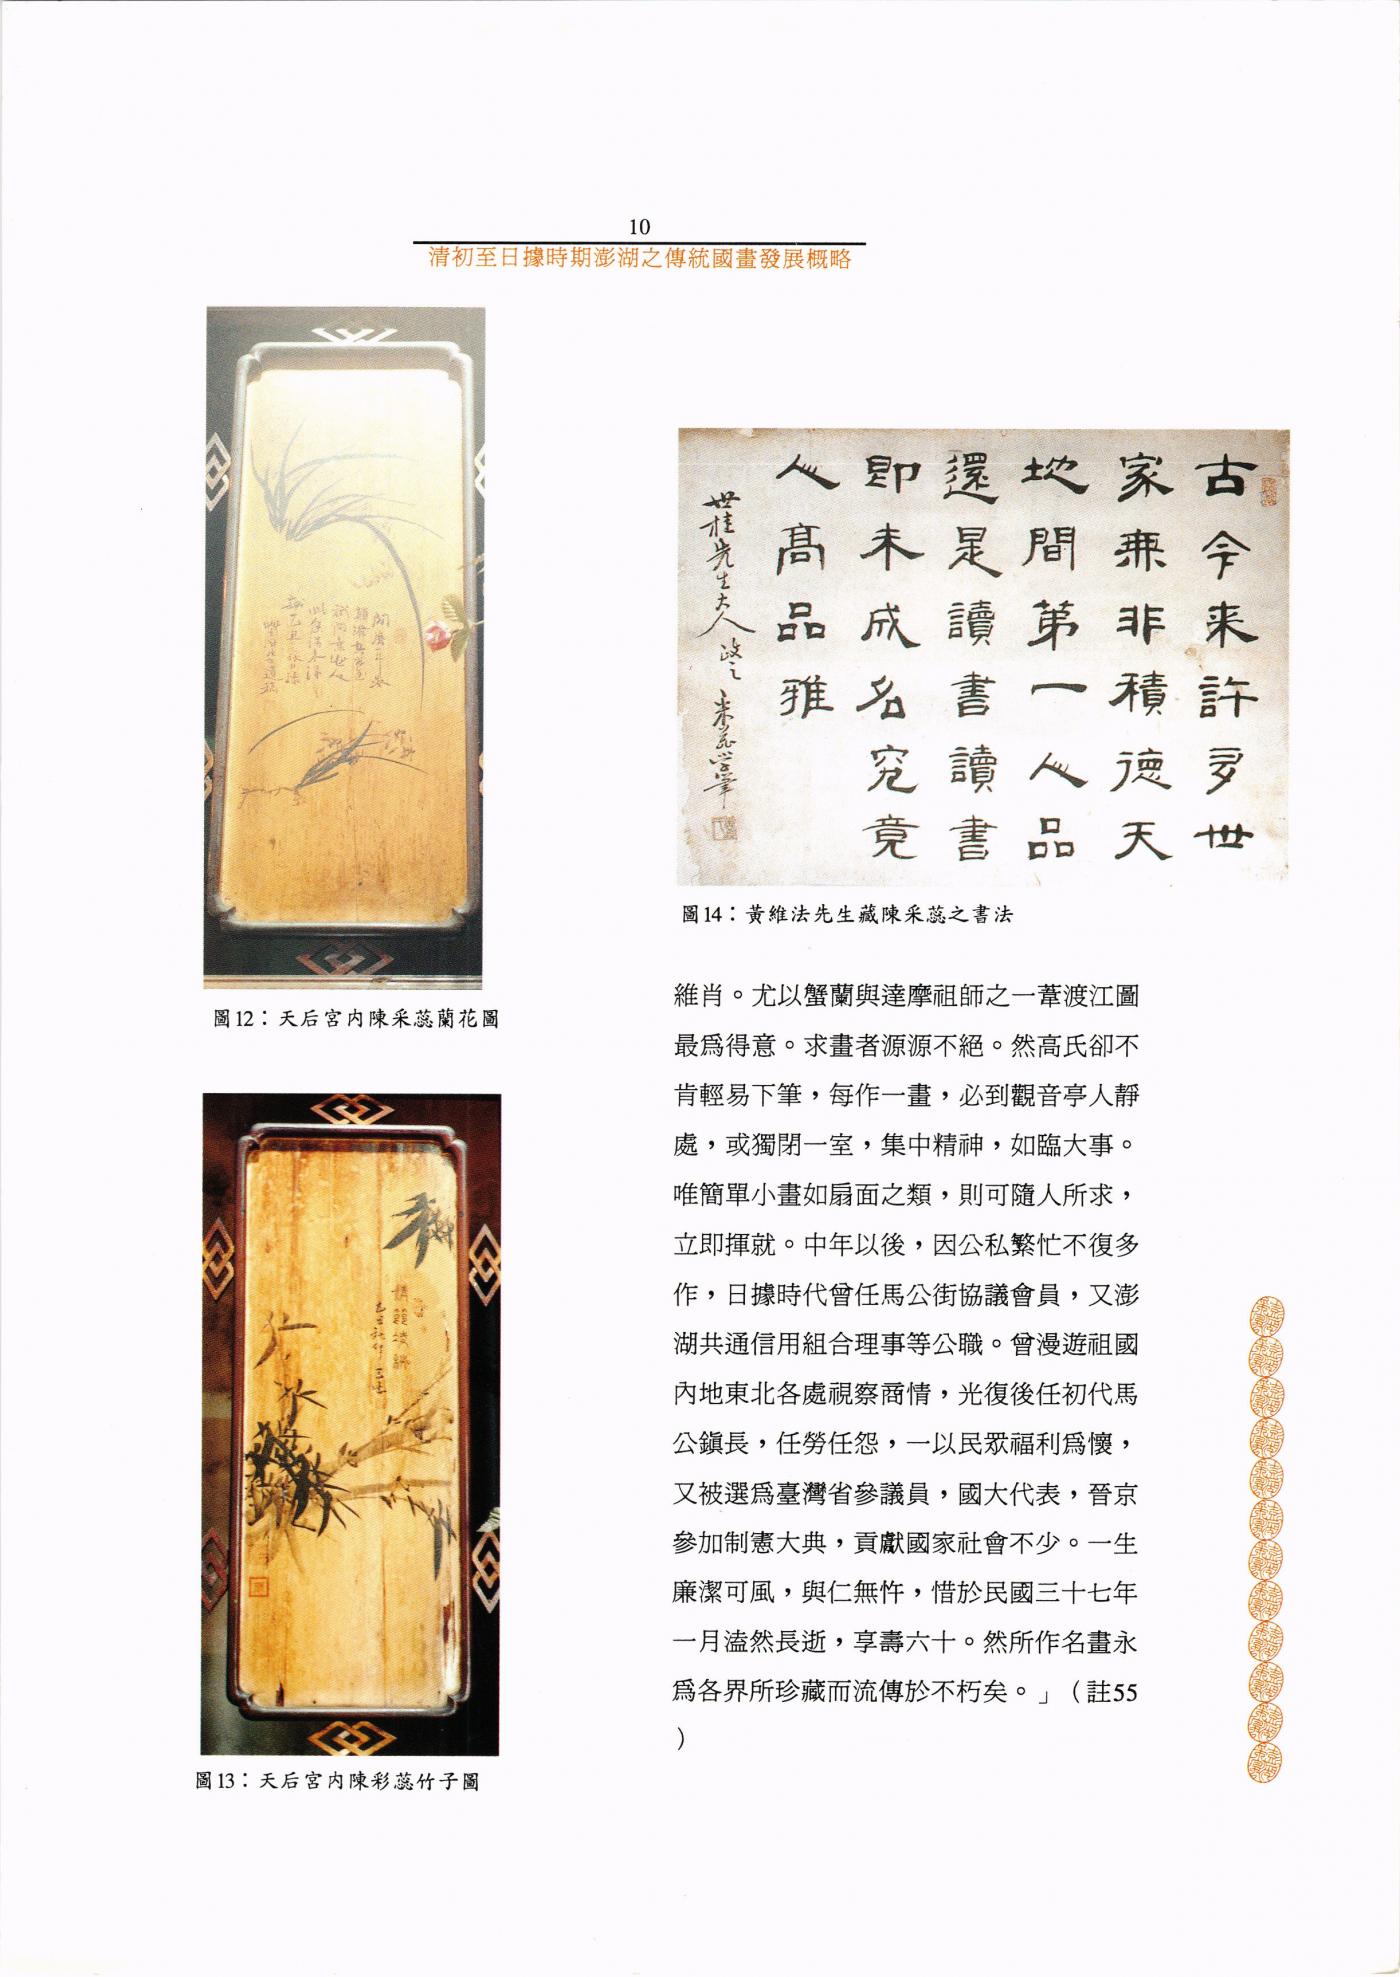 10
清初至日據時期澎湖之傳統國畫發展概略
圖12：天后宮內陳采蕊蘭花圖
圖13：天后宮內陳彩蕊竹子圖
古今来許多世
家無非積德天
地間第一人品
還是讀書讀書
即未成名究竟
人高品雅
世桂先生大人 政之 采蕊學筆
圖14：黃維法先生藏陳采蕊之書法
維肖。尤以蟹蘭與達摩祖師之一葦渡江圖
最爲得意。求畫者源源不絕。然高氏卻不
肯輕易下筆，每作一畫，必到觀音亭人靜
處，或獨閉一室，集中精神，如臨大事。
唯簡單小畫如扇面之類，則可隨人所求，
立即揮就。中年以後，因公私繁忙不復多
作，日據時代曾任馬公街協議會員，又澎
湖共通信用組合理事等公職。曾漫遊祖國
內地東北各處視察商情，光復後任初代馬
公鎭長，任勞任怨，一以民眾福利爲懷，
又被選爲臺灣省參議員，國大代表，晉京
參加制憲大典，貢獻國家社會不少。一生
廉潔可風，與仁無忤，惜於民國三十七年
一月溘然長逝，享壽六十。然所作名畫永
爲各界所珍藏而流傳於不朽矣。」（註55
）